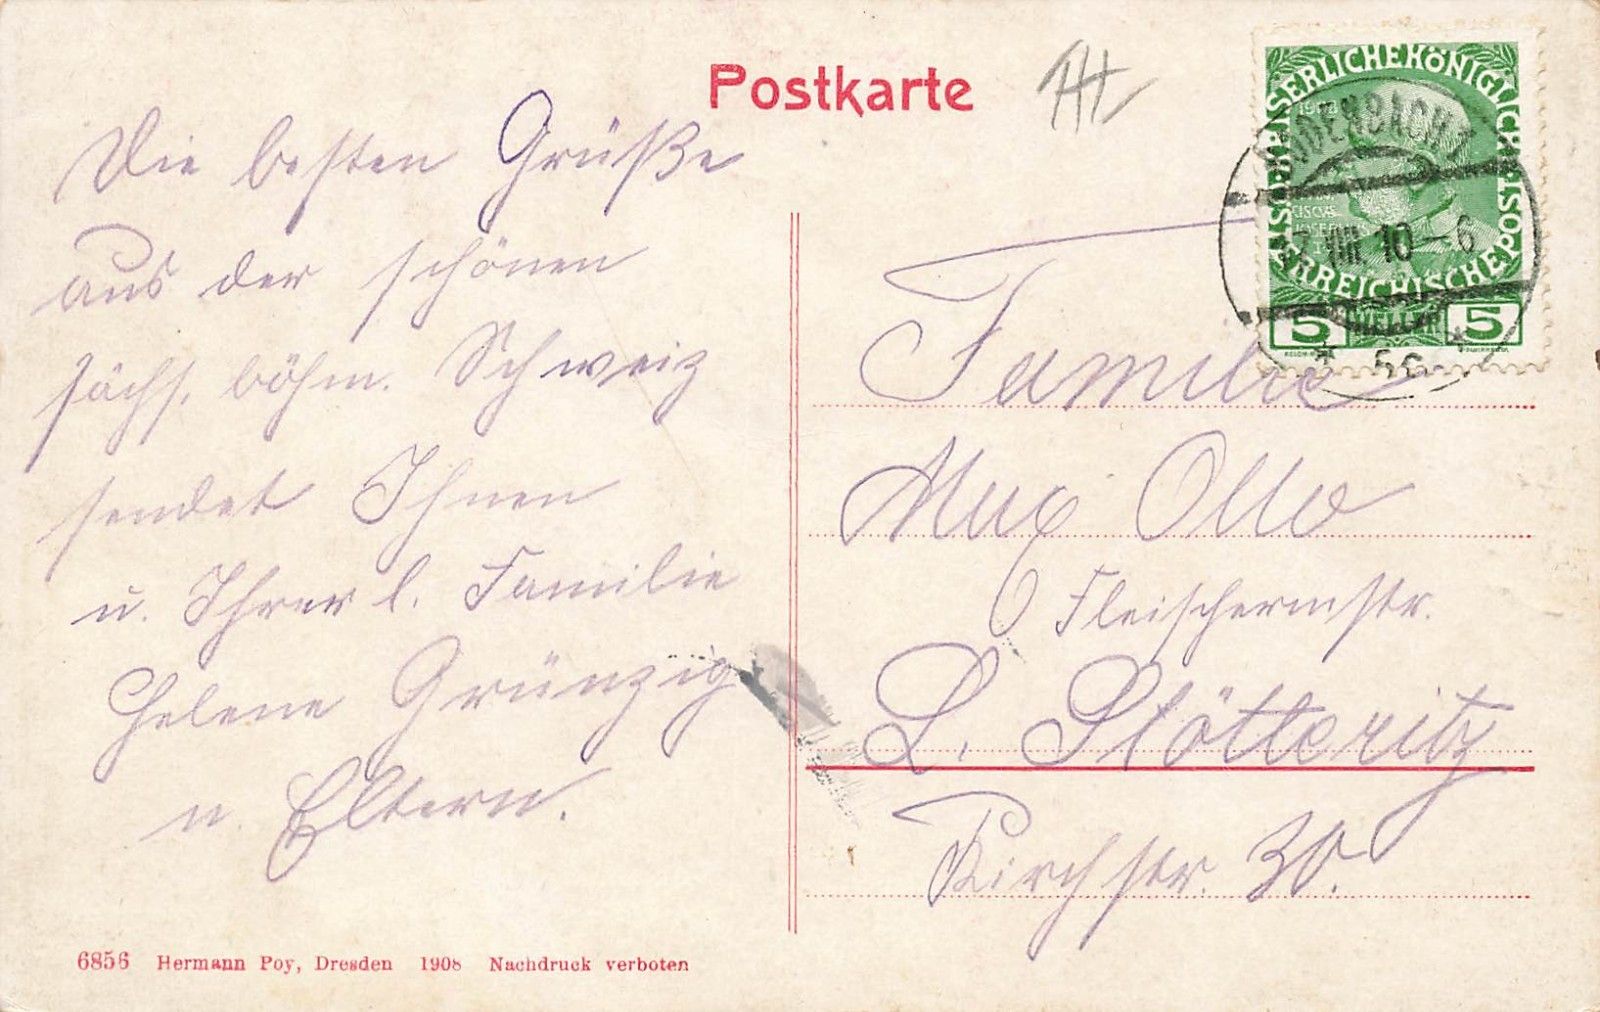 Postkarte
Die besten Grüße
aus der schönen
sächs. böhm. Schweiz
sendet Ihnen
u. Ihrer l. Familie
Helene Grünzig
u. Eltern.
KAISERLICHE KÖNIGLICHE
ÖSTERREICHISCHE POST
5 HELLER 5
BODENBACH 1
VIII 10-6
Familie
Max Otto
Fleischermstr.
L. Stötteritz
Kirchstr. 30.
6856 Hermann Poy, Dresden 1908 Nachdruck verboten